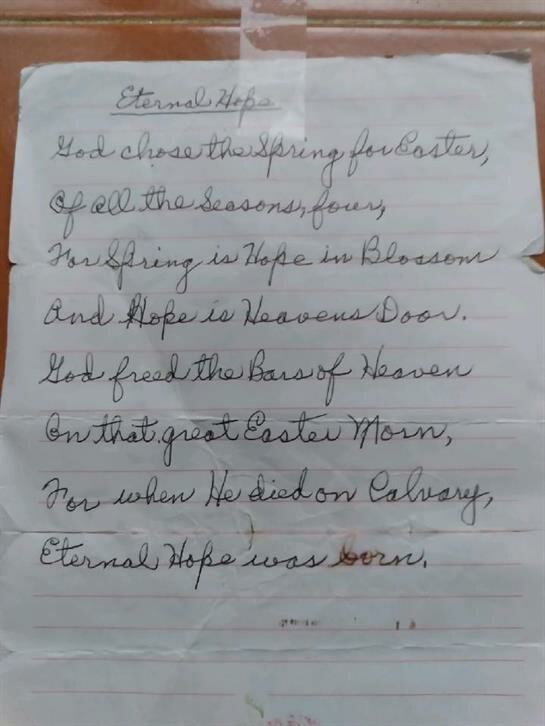 Eternal Hope
God chose the Spring for Easter,
Of all the Seasons, four,
For Spring is Hope in Blossom
And Hope is Heavens Door.
God freed the Bars of Heaven
On that great Easter Morn,
For when He died on Calvary,
Eternal Hope was born.